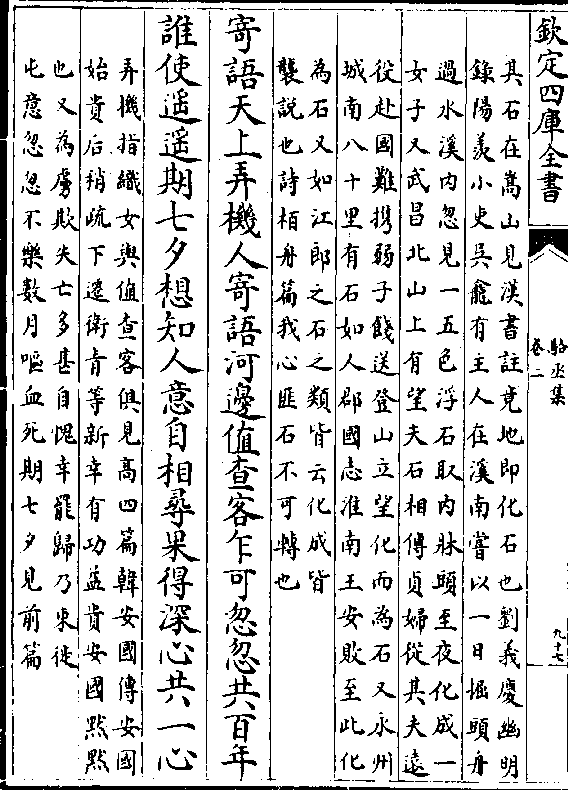 欽定四庫全書
駱丞集
卷二
九十七
其石在嵩山見漢書註竟地即化石也劉義慶幽明
錄陽羨小吏吳龕有主人在溪南嘗以一日掘頭舟
過水溪內忽見一五色浮石取內牀頭至夜化成一
女子又武昌北山上有望夫石相傳貞婦從其夫遠
役赴國難携弱子餞送登山立望化而為石又永州
城南八十里有石如人郡國志淮南王安敗至此化
為石又如江郎之石之類皆云化成皆
襲説也詩栢舟篇我心匪石不可轉也
寄語天上弄機人寄語河邊值查客乍可忽忽共百年
誰使遥遥期七夕想知人意自相尋果得深心共一心
弄機指織女與值查客俱見高四篇韓安國傳安國
始貴后稍疏下遷衛青等新幸有功益貴安國黙黙
也又為虜欺失亡多甚自愧幸罷歸乃東徙
屯意忽忽不樂數月嘔血死期七夕見前篇